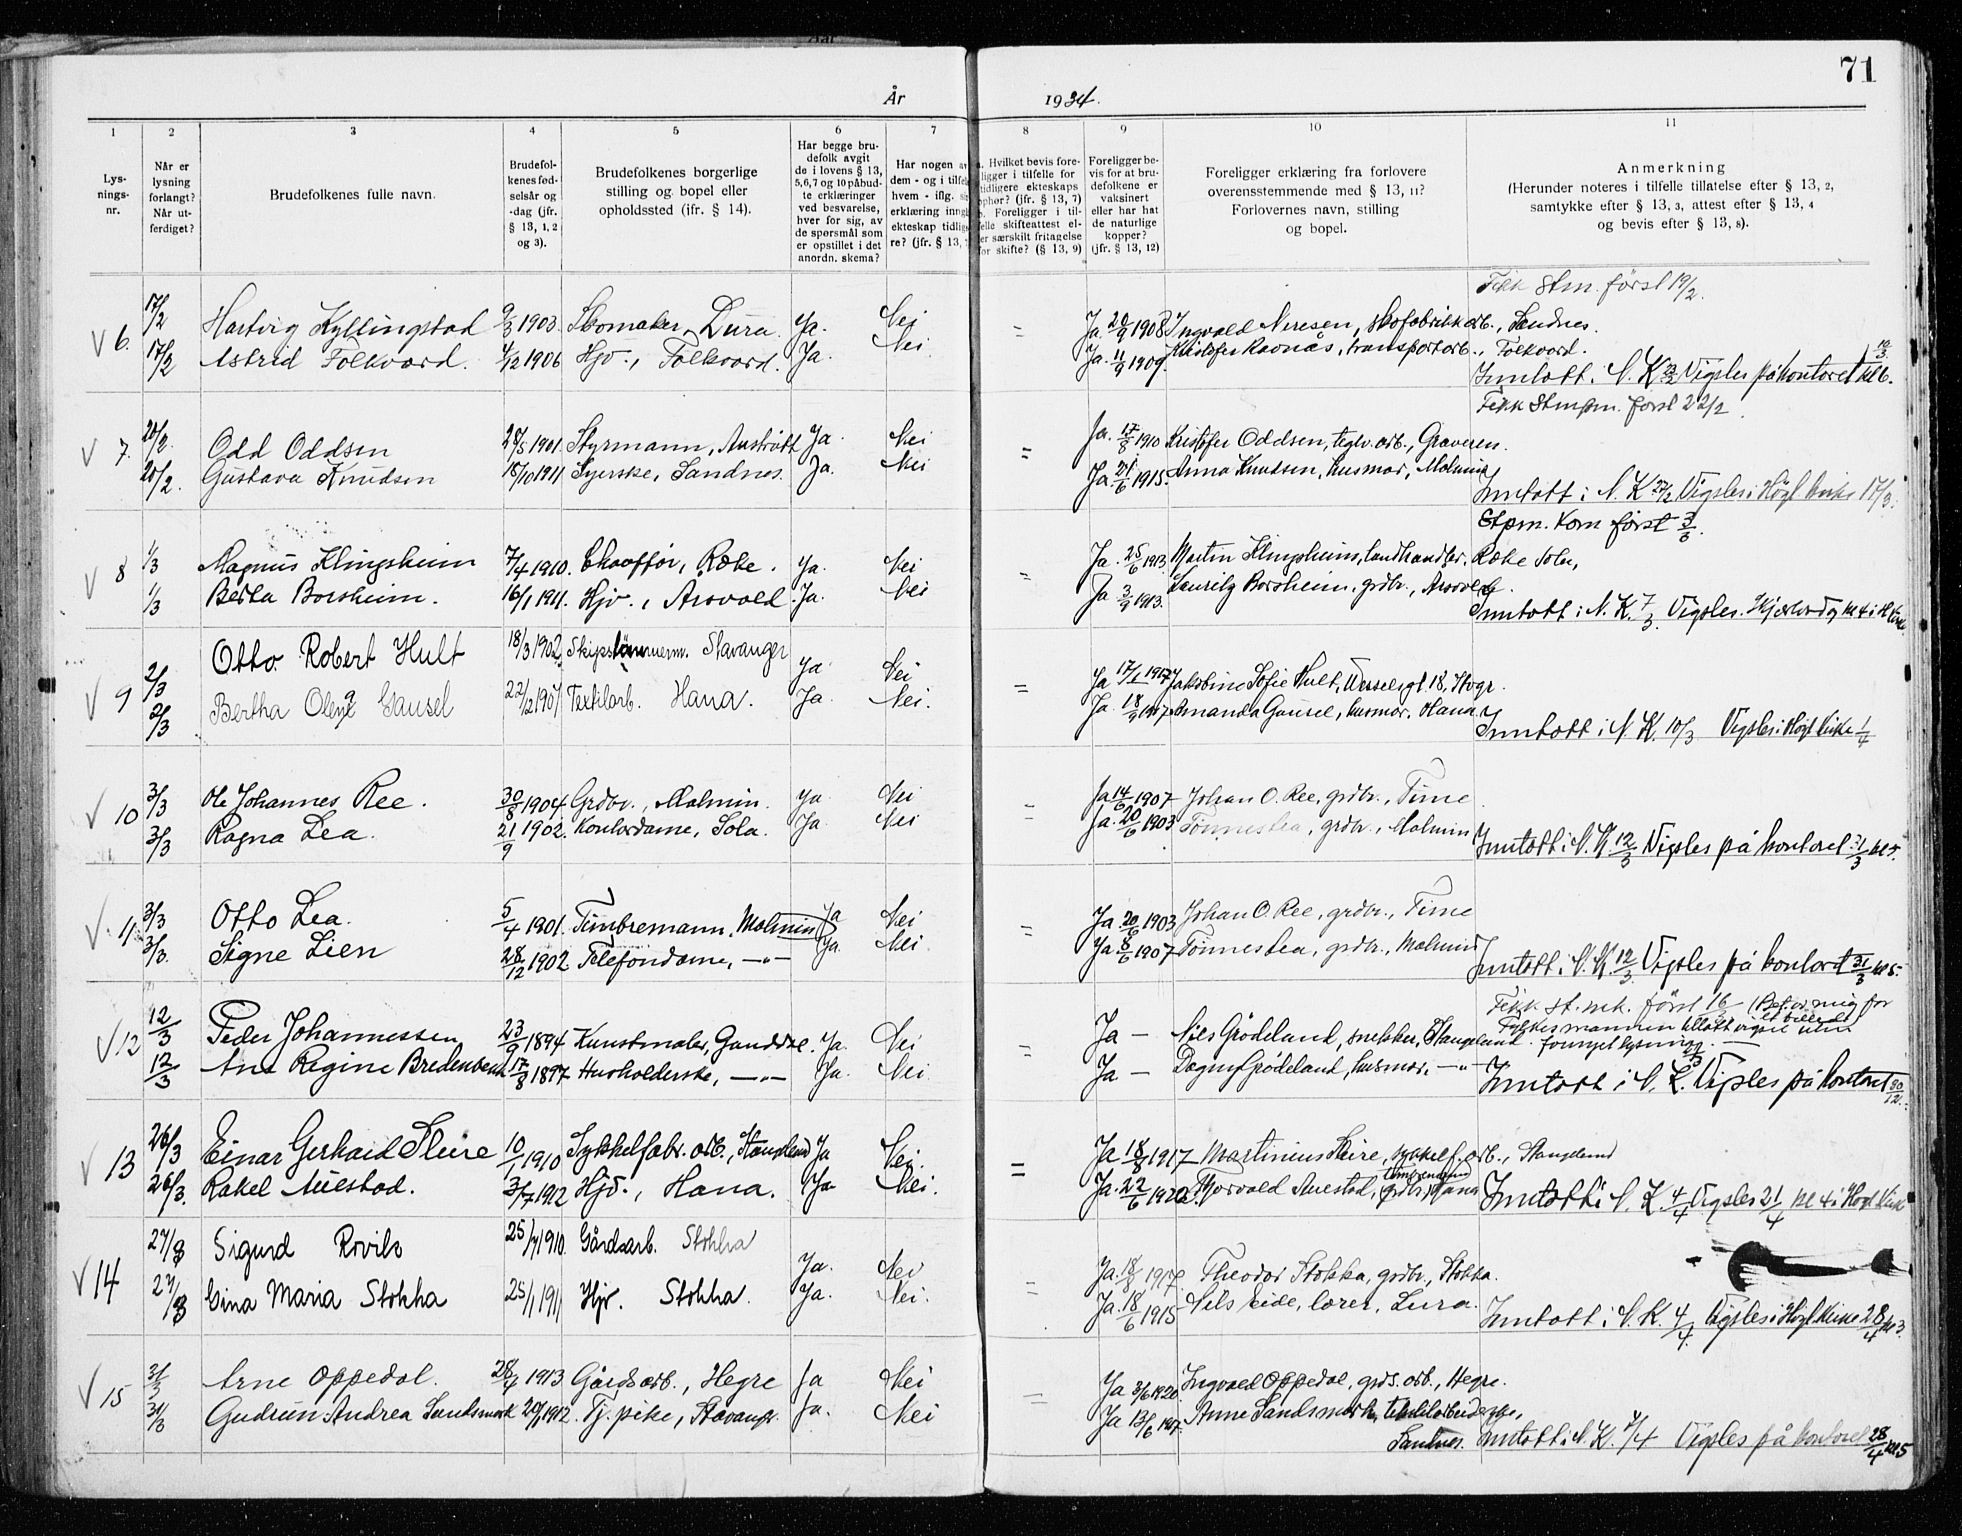 71
År 1934.
1 2 3 4 5 6 7 8 9 10 11
Lys-nings-nr.
Når er lysning forlangt? Når ut-ferdiget?
Brudefolkenes fulle navn.
Brudefol-kenes fød-selsår og -dag (jfr. § 13, 1, 2 og 3).
Brudefolkenes borgerlige stilling og bopel eller opholdssted (ifr. § 14).
Har begge bru-defolk avgit de i lovens § 13, 5,6,7 og 10 påbud-te erklæringer ved besvarelse, hver for sig, av de spørsmål som er opstillet i det anordn. skema?
Har nogen av dem - og i tilfelle hvem - iflg. erklæring inngått ekteskap tidlige-re? (jfr. § 13,
a. Hvilket bevis fore-ligger i tilfelle for tidligere ekteskaps ophør? (jfr. § 13, 7) b. Foreligger i til-felle skifteattest el-ler særskilt fritagelse for skifte? (§ 13, 9)
Foreligger be-vis for at bru-defolkene er vaksinert eller har hat de naturlige kopper? (jfr. § 13, 12)
Foreligger erklæring fra forlovere overensstemmende med § 13, 11? Forlovernes navn, stilling og bopel.
Anmerkning (Herunder noteres i tilfelle tillatelse efter § 13, 2, samtykke efter § 13, 3, attest efter § 13, 4 og bevis efter § 13, 8).
Fikk Stm. først 19/2.
V 6. 17/2 Hartvig Kyllingstad 9/3 1903. Skomaker, Lura. Ja. Nei = Ja. 20/9 1908 Ingvald Neresen, skofabrikkarb., Sandnes.
17/2 Astrid Folkvord. 4/12 1906 Hjv., Folkvord. Ja. Nei Ja. 11/9 1909. Kristofer Ravnås, transportarb., Folkvord.
Inntatt i N. K. 23/2 Vigsles på kontoret 10/3 kl 6.
Fikk Stmpm. først 22/2.
V 7. 20/2 Odd Oddsen 28/5 1901. Styrmann, Austrått Ja. Nei = Ja. 17/8 1910 Kristofer Oddsen, teglv. arb., Graveren.
20/2. Gustava Knudsen 18/10 1911 Syerske, Sandnes. Ja. Nei Ja. 21/6 1915. Anna Knudsen, husmor, Malmin
Inntatt i N. K 27/2 Vigsles i Høgl kirke 17/3.
Stpm. Kom først 3/3.
V 8 1/3 Magnus Klingsheim 7/4 1910. Chauffør, Røke. Ja. Nei = Ja. 25/6 1913. Martin Klingsheim, landhandler, Røke Sola,
1/3 Berta Borsheim. 16/1 1911. Hjv., Asvald. Ja. Nei Ja 3/9 1913. Lauritz Borsheim, grdbr., Asvald.
Inntatt i N. K. 7/3. Vigsles
V 9 2/3 Otto Robert Hult 18/3 1902. Skipstømmerm. Stavanger Ja Nei = Ja 17/1 1917 Jakobine Sofie Hult, Wesselsgt. 18, Stvgr.
2/3 Bertha Olene Gausel 22/12 1907 Textilarb. Hana. Ja. Nei. Ja. 18/9 1917 Amanda Gausel, husmor, Hana
Inntatt i N. K. 10/3 Vigsles i Høgl Kirke 1/4
V 10 3/3 Ole Johannes Ree. 30/8 1904 Grdbr., Malmin. Ja. Nei = Ja 14/6 1907 Johan O. Ree, grdbr., Time
3/3 Ragna Lea. 21/9 1902. Kontordame, Sola. Ja. Nei Ja. 20/6 1903 Tønnes Lea, grdbr., Malmin
Inntatt i N. K. 12/3 Vigsles på kontoret 31/3 kl 5.
V. 11. 3/3 Otto Lea. 5/4 1901. Timbremann, Malmin Ja Nei = Ja 20/6 1903 Johan O. Ree, grdbr., Time
3/3. Signe Lien 28/12 1902 Telefondame, —"— Ja. Nei Ja 8/6 1907 Tønnes Lea, grdbr., Malmin
Inntatt i N. K. 12/3. Vigsles på kontoret 31/3 kl 5.
Fikk st. mk. først 16/3
V 12 12/3 Peder Johannessen 23/9 1894 Kunstmaler, Ganddal. Ja. Nei = Ja — Nils Grødeland, snekker, Stangeland. Fylkesmannen tillatt vigsel uten fornyet lysning.
12/3 Ane Regine Bredenbeck 17/8 1897 Husholderske, —"— Ja. Nei Ja — Dagny Grødeland, husmor, —"—
Inntatt i N. K. Vigsles på kontoret 30/12.
V 13 26/3 Einar Gerhard Skeire 10/1 1910 Sykkelfabr. arb., Stangeland Ja Nei. = Ja 18/8 1917 Martinius Skeire, sykkelf. arb., Stangeland
26/3. Rakel Auestad. 3/7 1902 Hjv., Hana. Ja. Nei. Ja. 22/6 1920. Torvald Auestad, grdbr., Hana
Inntatt i N. K. 4/4 Vigsles 21/4 kl 4 i Høgl Kirke
V 14 27/3 Sigurd Rovik 25/7 1910. Gårdsarb. Stokka Ja. Nei = Ja. 18/8 1917 Theodor Stokka, grdbr., Stokka.
27/3 Gina Maria Stokka 25/1 1911 Hjv. Stokka. Ja. Nei. Ja. 18/6 1915 Nils Eide, lærer, Lura.
Inntatt i N. K. 4/4. Vigsles i Høgl kirke 28/4 kl 3.
V 15 31/3 Arne Oppedal. 28/4 1913 Gårdsarb., Hegre Ja Nei = Ja 3/6 1920 Ingvald Oppedal, grds. arb., Hegre.
31/3 Gudrun Andrea Sandsmark 20/1 1912. Tj. pike, Stavanger. Ja. Nei Ja 13/6 1917. Anne Sandsmark, tekstilarbeiderske,
Sandnes. Inntatt i N. K. 7/4 Vigsles på kontoret 28/4 kl 5